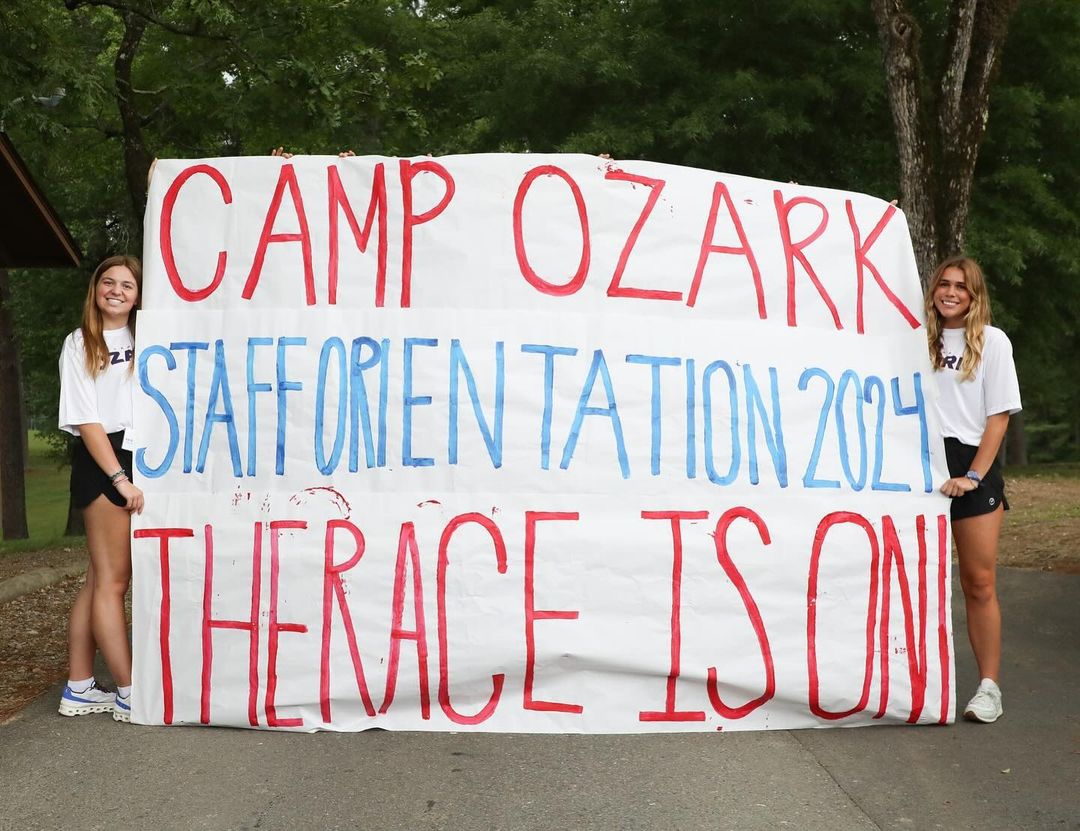 CAMP OZARK
STAFF ORIENTATION 2024
THE RACE IS ON!